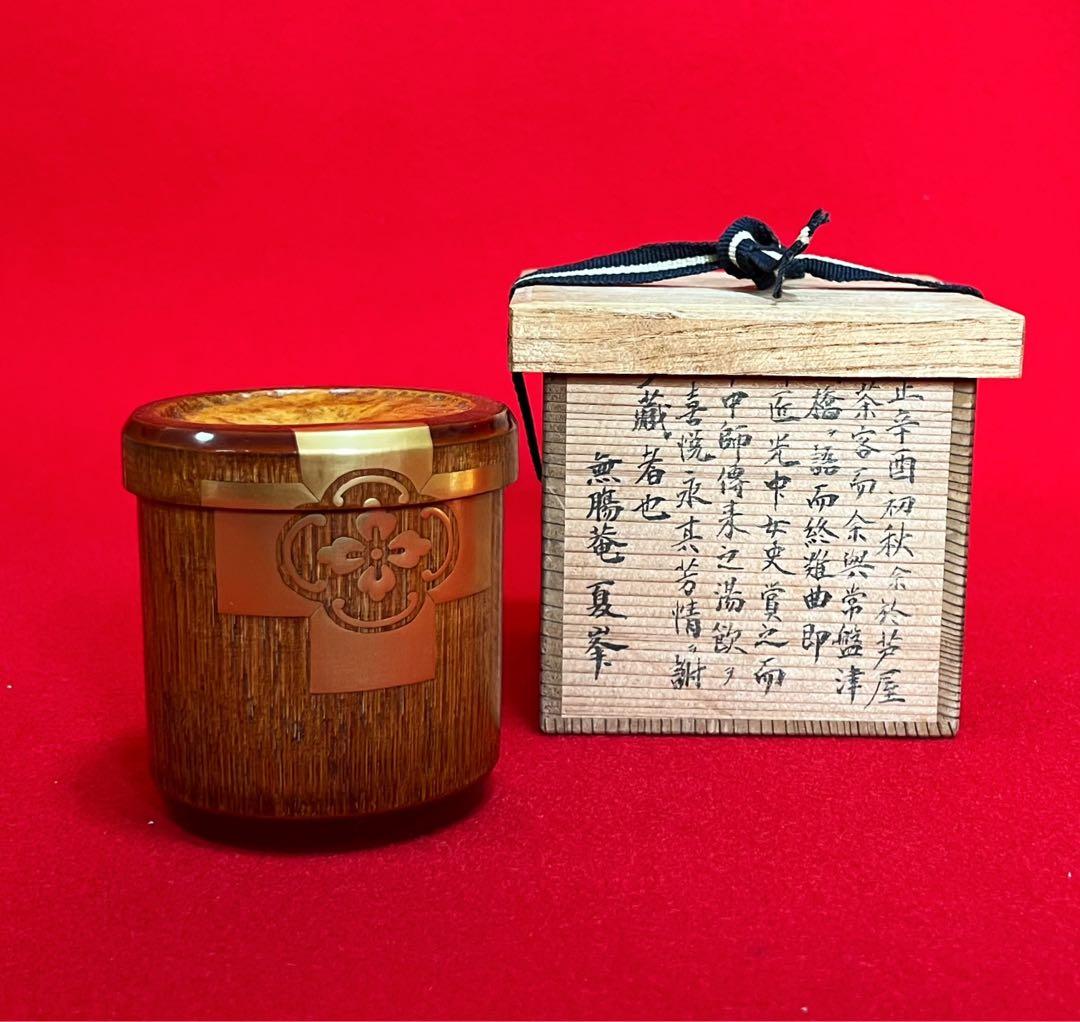 正辛酉初秋余於芦屋
茶客而余與常盤津
橋ヲ語而終難曲即
匠光中女史賞之而
中師傳来之湯飲ヲ
喜悦永其芳情ヲ謝
藏者也
無腸菴 夏峯